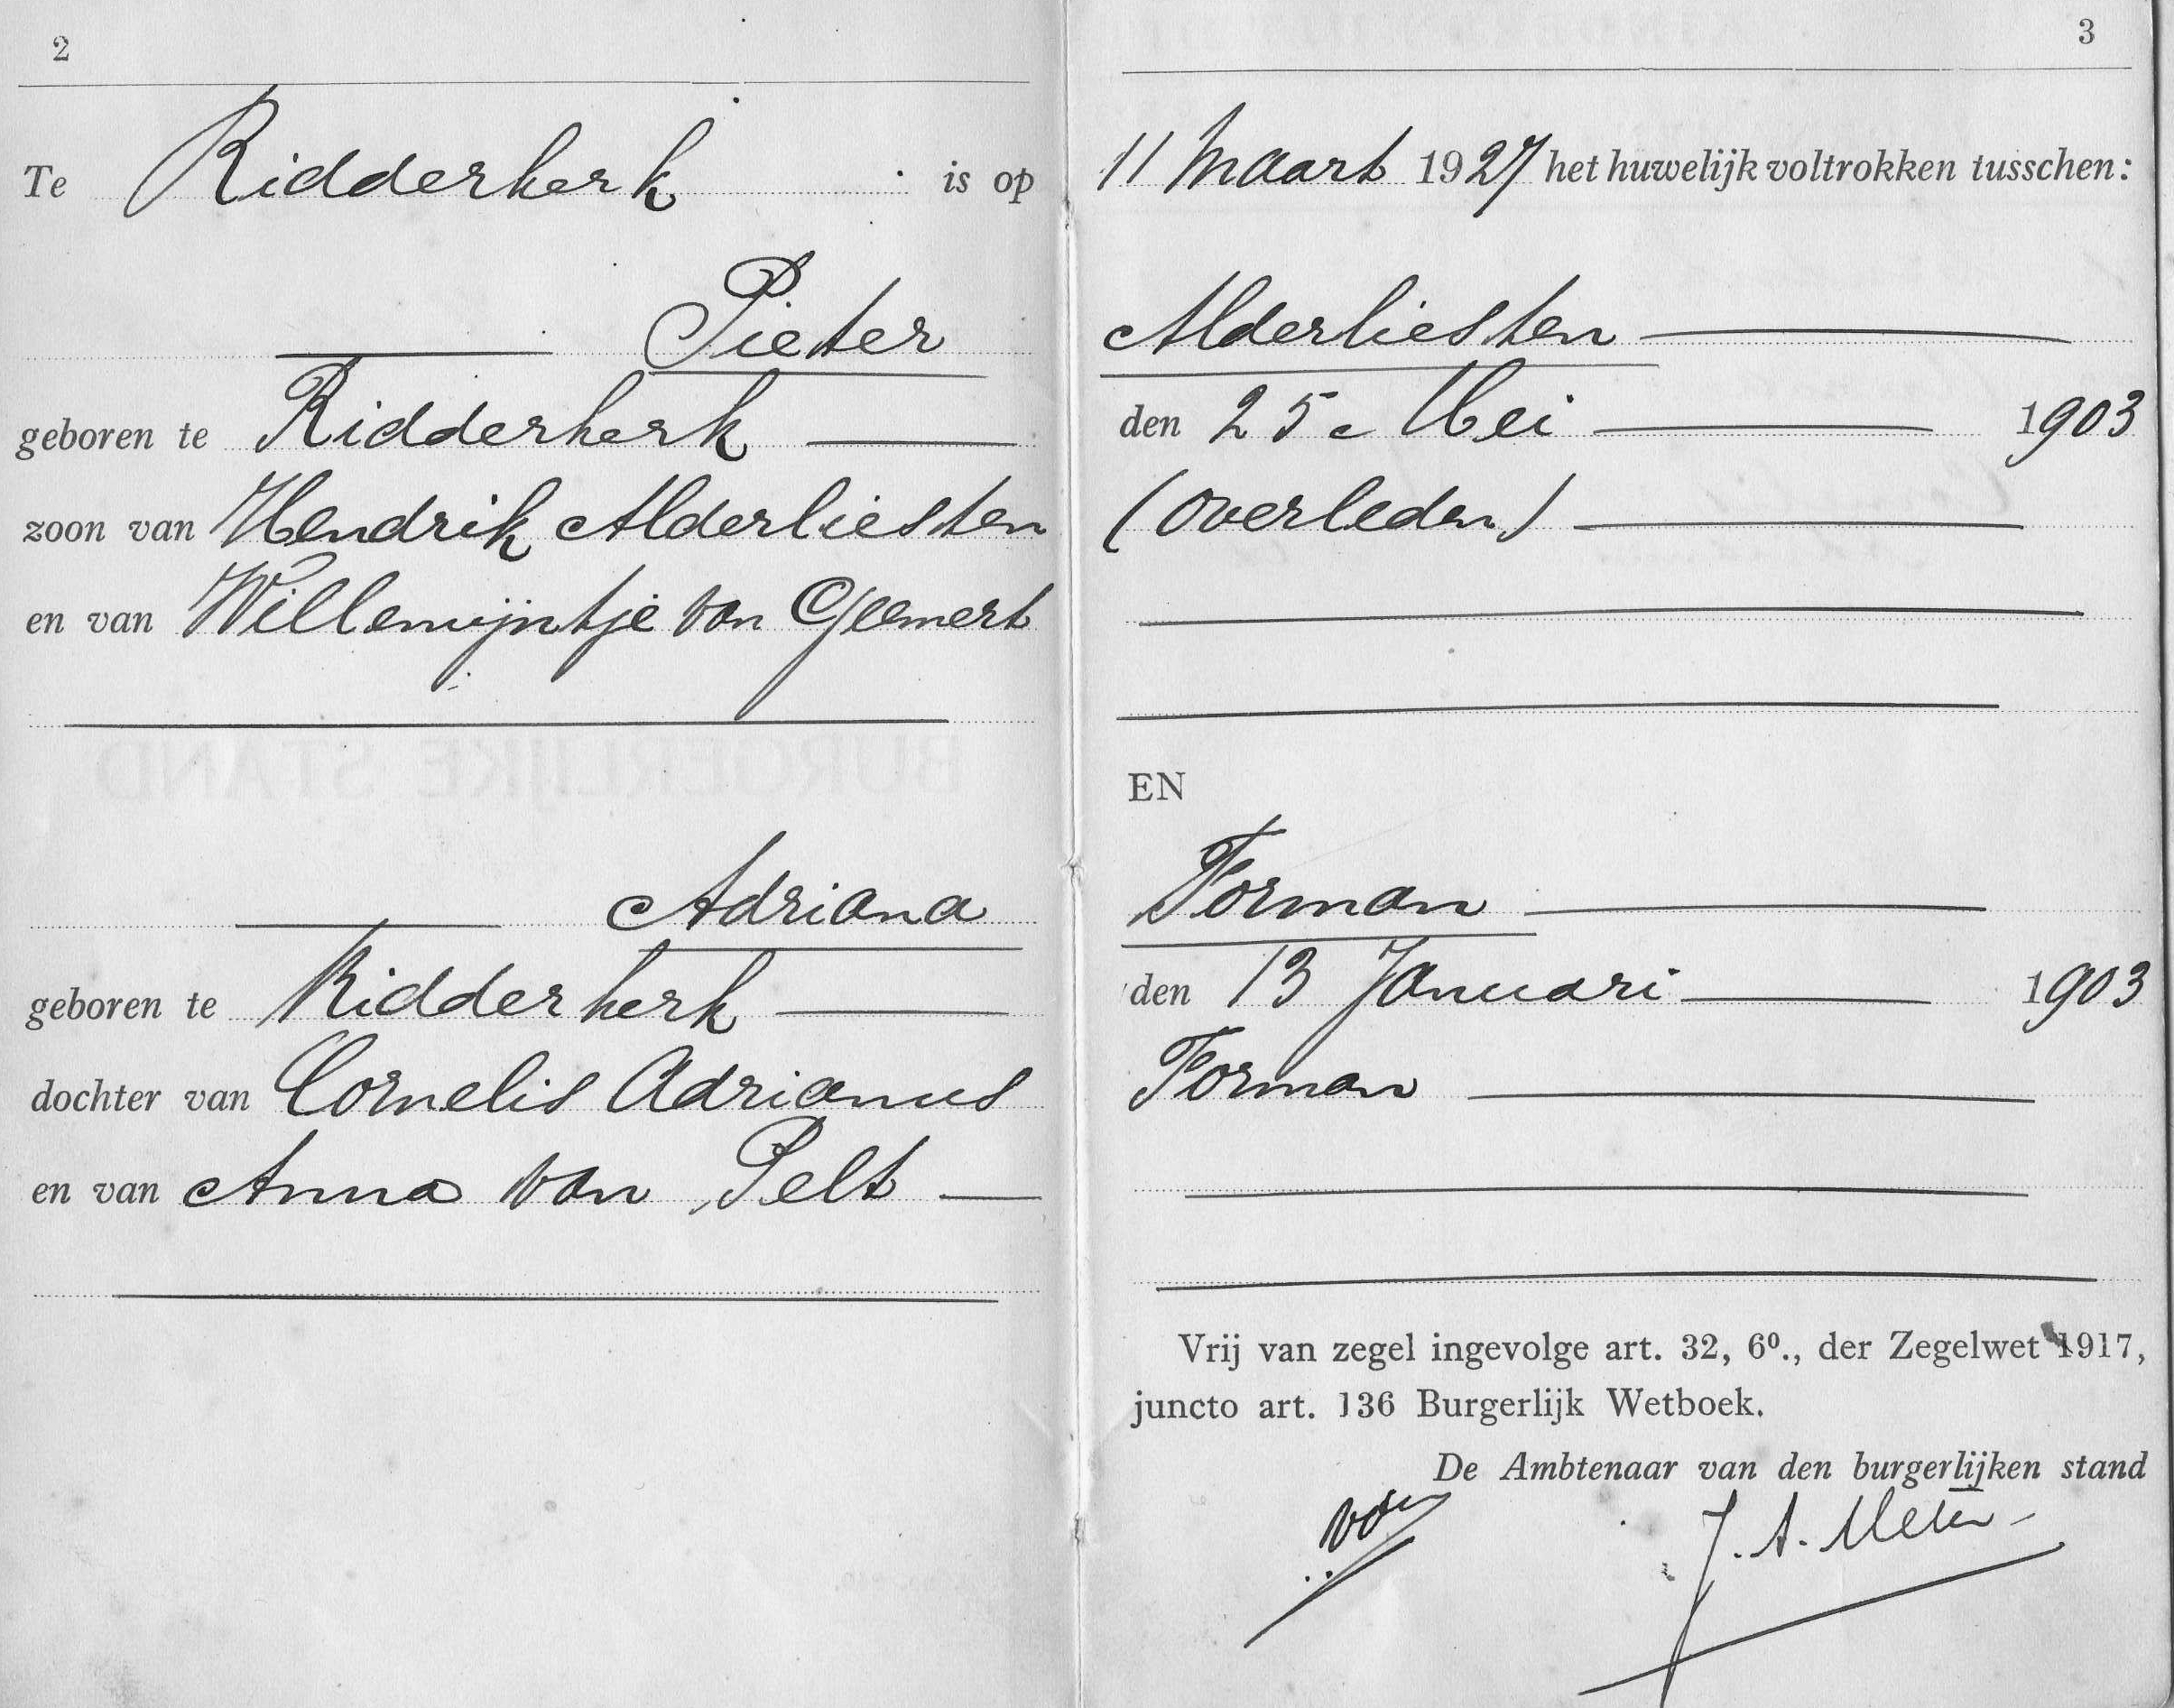 2
Te Ridderkerk is op
Pieter
geboren te Ridderkerk
zoon van Hendrik Alderliesten
en van Willemijntje van Geemert
Adriana
geboren te Ridderkerk
dochter van Cornelis Adrianus
en van Anna van Pelt
3
11 Maart 1927 het huwelijk voltrokken tusschen:
Alderliesten
den 25e Mei 1903
(overleden)
EN
Forman
den 13 Januari 1903
Forman
Vrij van zegel ingevolge art. 32, 6º., der Zegelwet 1917,
juncto art. 136 Burgerlijk Wetboek.
De Ambtenaar van den burgerlijken stand
J. A.